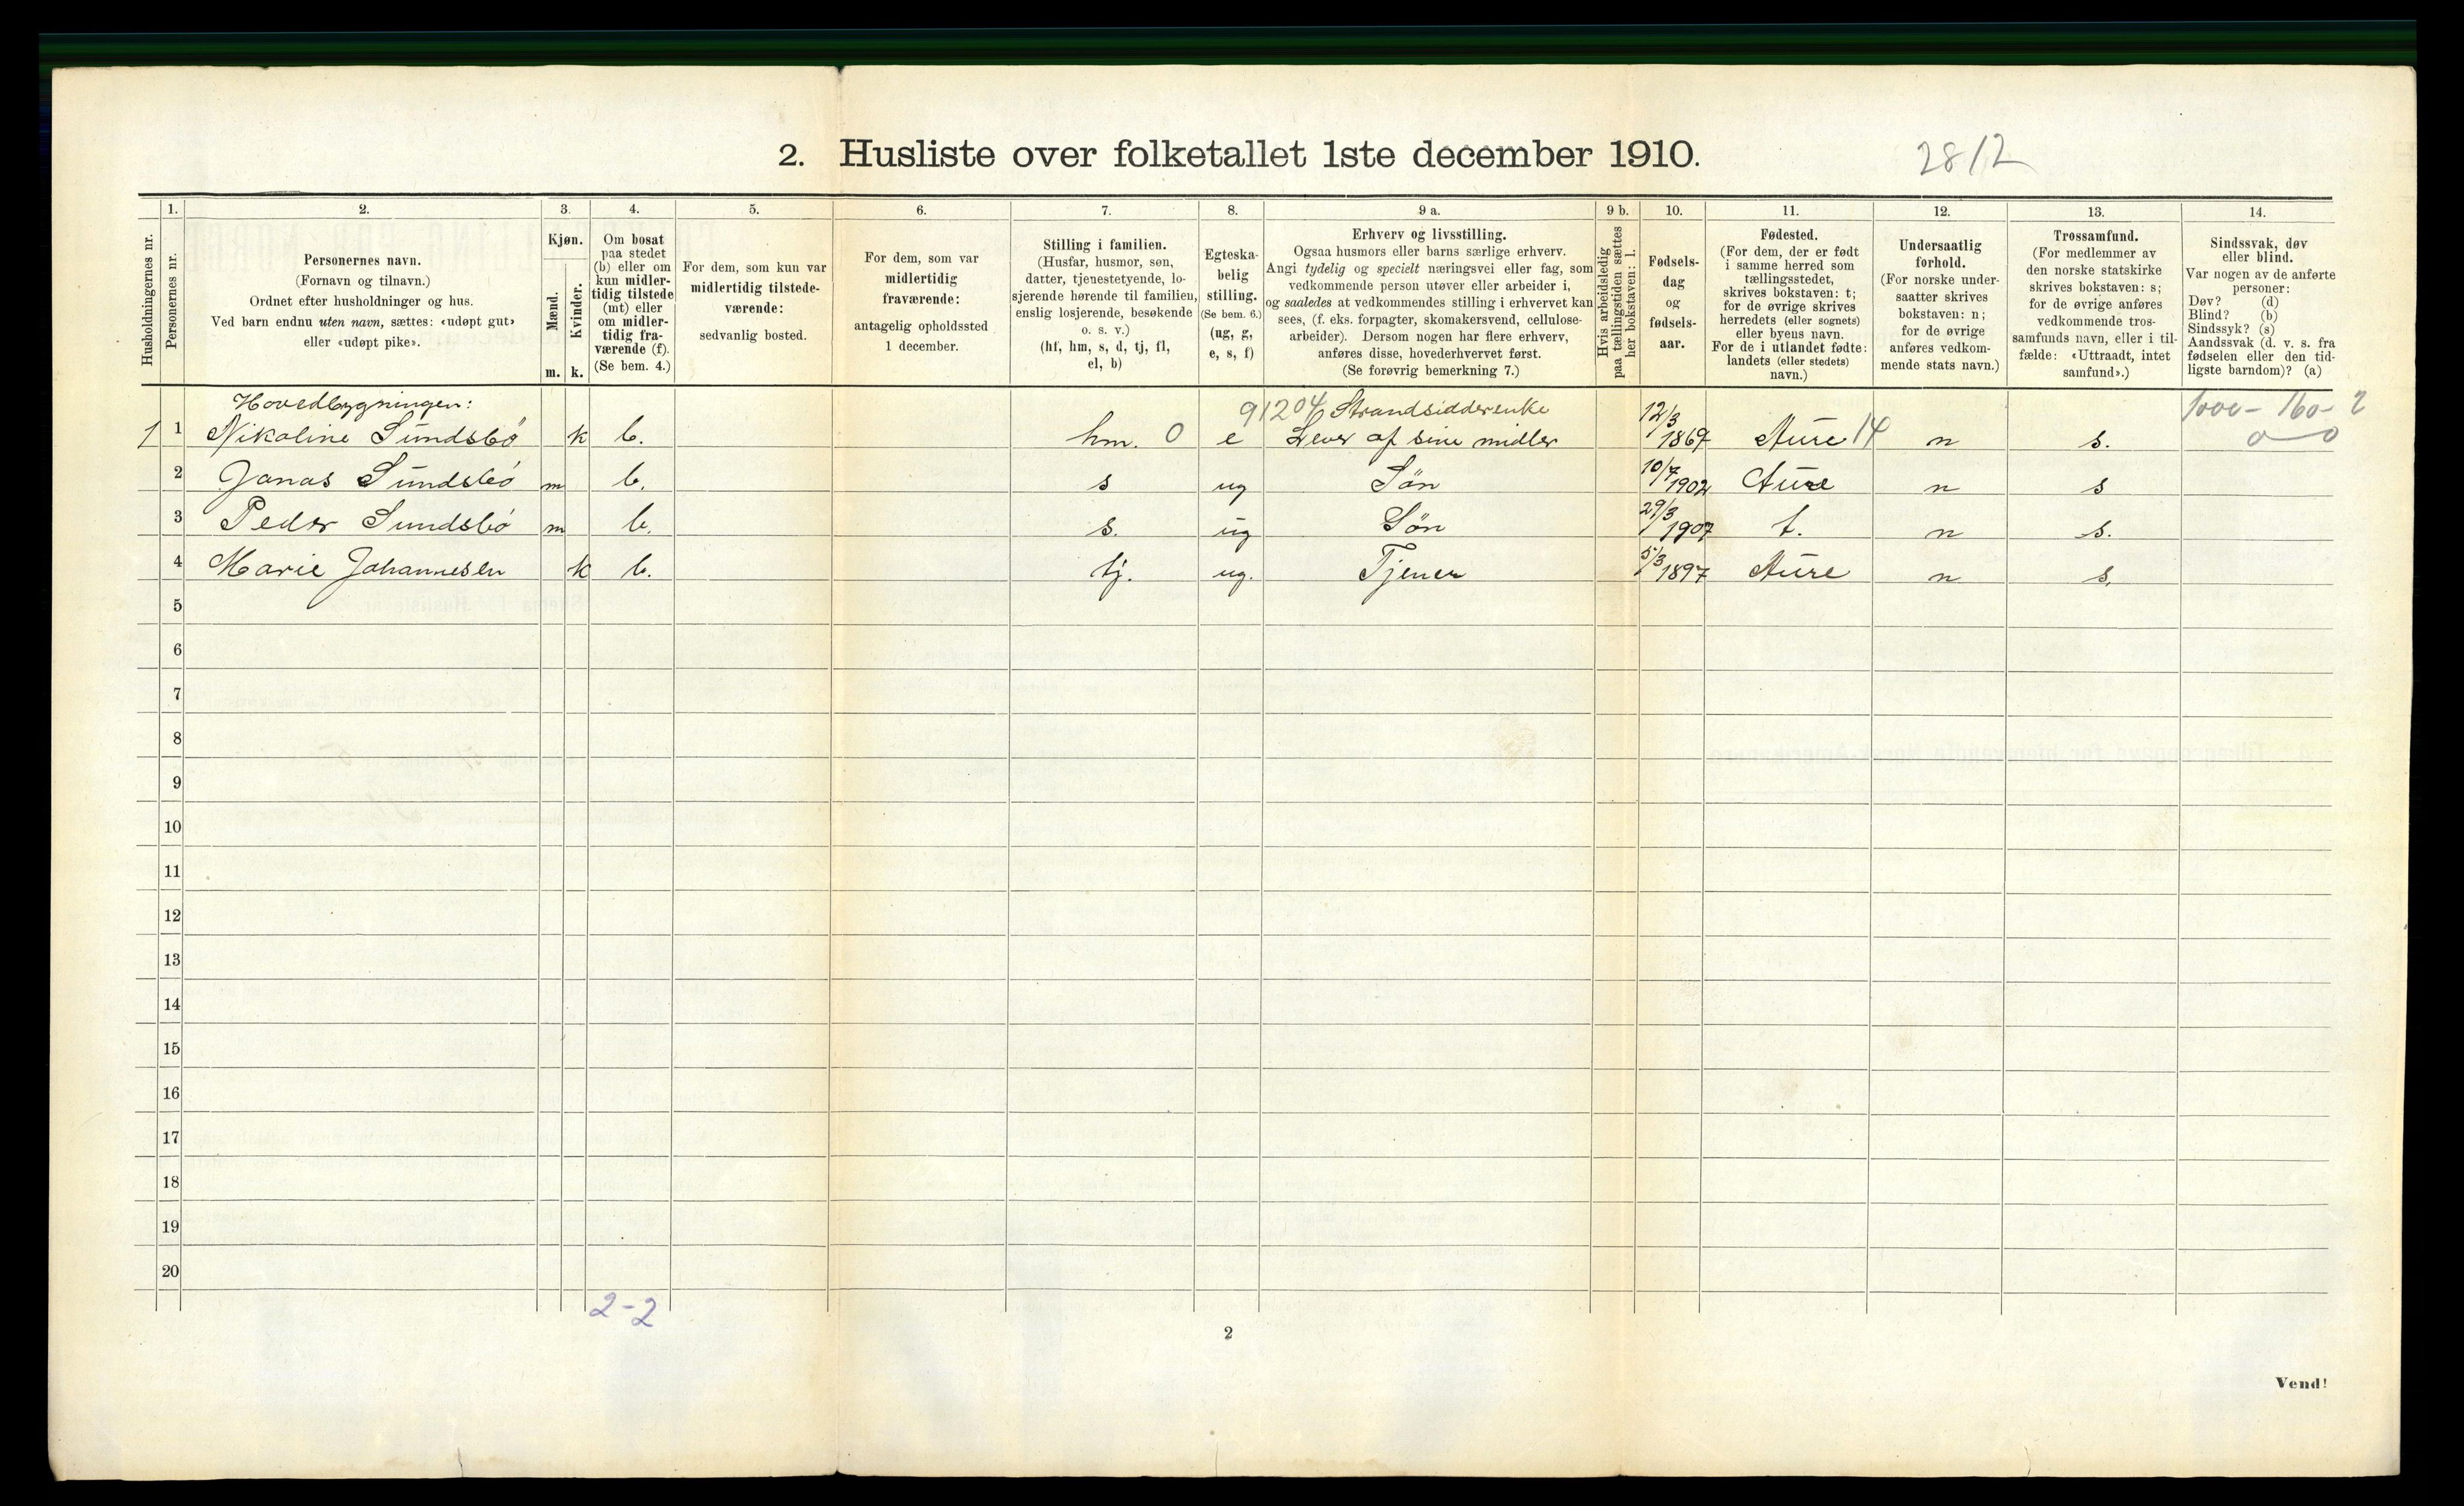 2. Husliste over folketallet 1ste december 1910.
2812
Husholdningernes nr.
1.
Personernes nr.
2.
Personernes navn.
(Fornavn og tilnavn.)
Ordnet efter husholdninger og hus.
Ved barn endnu uten navn, sættes: «udøpt gut»
eller «udøpt pike».
3.
Kjøn.
Mænd.
Kvinder.
m. k.
4.
Om bosat
paa stedet
(b) eller om
kun midler-
tidig tilstede
(mt) eller
om midler-
tidig fra-
værende (f).
(Se bem. 4.)
5.
For dem, som kun var
midlertidig tilstede-
værende:
sedvanlig bosted.
6.
For dem, som var
midlertidig
fraværende:
antagelig opholdssted
1 december.
7.
Stilling i familien.
(Husfar, husmor, søn,
datter, tjenestetyende, lo-
sjerende hørende til familien,
enslig losjerende, besøkende
o. s. v.)
(hf, hm, s, d, tj, fl,
el, b)
8.
Egteska-
belig
stilling.
(Se bem. 6.)
(ug, g,
e, s, f)
9 a.
Erhverv og livsstilling.
Ogsaa husmors eller barns særlige erhverv.
Angi tydelig og specielt næringsvei eller fag, som
vedkommende person utøver eller arbeider i,
og saaledes at vedkommendes stilling i erhvervet kan
sees, (f. eks. forpagter, skomakersvend, cellulose-
arbeider). Dersom nogen har flere erhverv,
anføres disse, hovederhvervet først.
(Se forøvrig bemerkning 7.)
9 b.
Hvis arbeidsledig
paa tællingstiden sættes
her bokstaven: l.
10.
Fødsels-
dag
og
fødsels-
aar.
11.
Fødested.
(For dem, der er født
i samme herred som
tællingsstedet,
skrives bokstaven: t;
for de øvrige skrives
herredets (eller sognets)
eller byens navn.
For de i utlandet fødte:
landets (eller stedets)
navn.)
12.
Undersaatlig
forhold.
(For norske under-
saatter skrives
bokstaven: n;
for de øvrige
anføres vedkom-
mende stats navn.)
13.
Trossamfund.
(For medlemmer av
den norske statskirke
skrives bokstaven: s;
for de øvrige anføres
vedkommende tros-
samfunds navn, eller i til-
fælde: «Uttraadt, intet
samfund».)
14.
Sindssvak, døv
eller blind.
Var nogen av de anførte
personer:
Døv? (d)
Blind? (b)
Sindssyk? (s)
Aandssvak (d. v. s. fra
fødselen eller den tid-
ligste barndom)? (a)
Hovedbygningen: 91204 Strandsidderenke 12/3 1000 - 160 - 2
1 1 Nikoline Sundsbö k b. hm. 0 e Lever af sine midler 1867 Aure 14 n s. 0 0
2 Jonas Sundsbö m b. s ug Søn 10/7 1902 Aure n s
3 Peder Sundsbö m b. s. ug Søn 29/3 1907 t. n s.
4 Marie Johannesen k b. tj. ug. Tjener 5/3 1897 Aure n s.
5
6
7
8
9
10
11
12
13
14
15
16
17
18
19
20
2-2
2
Vend!